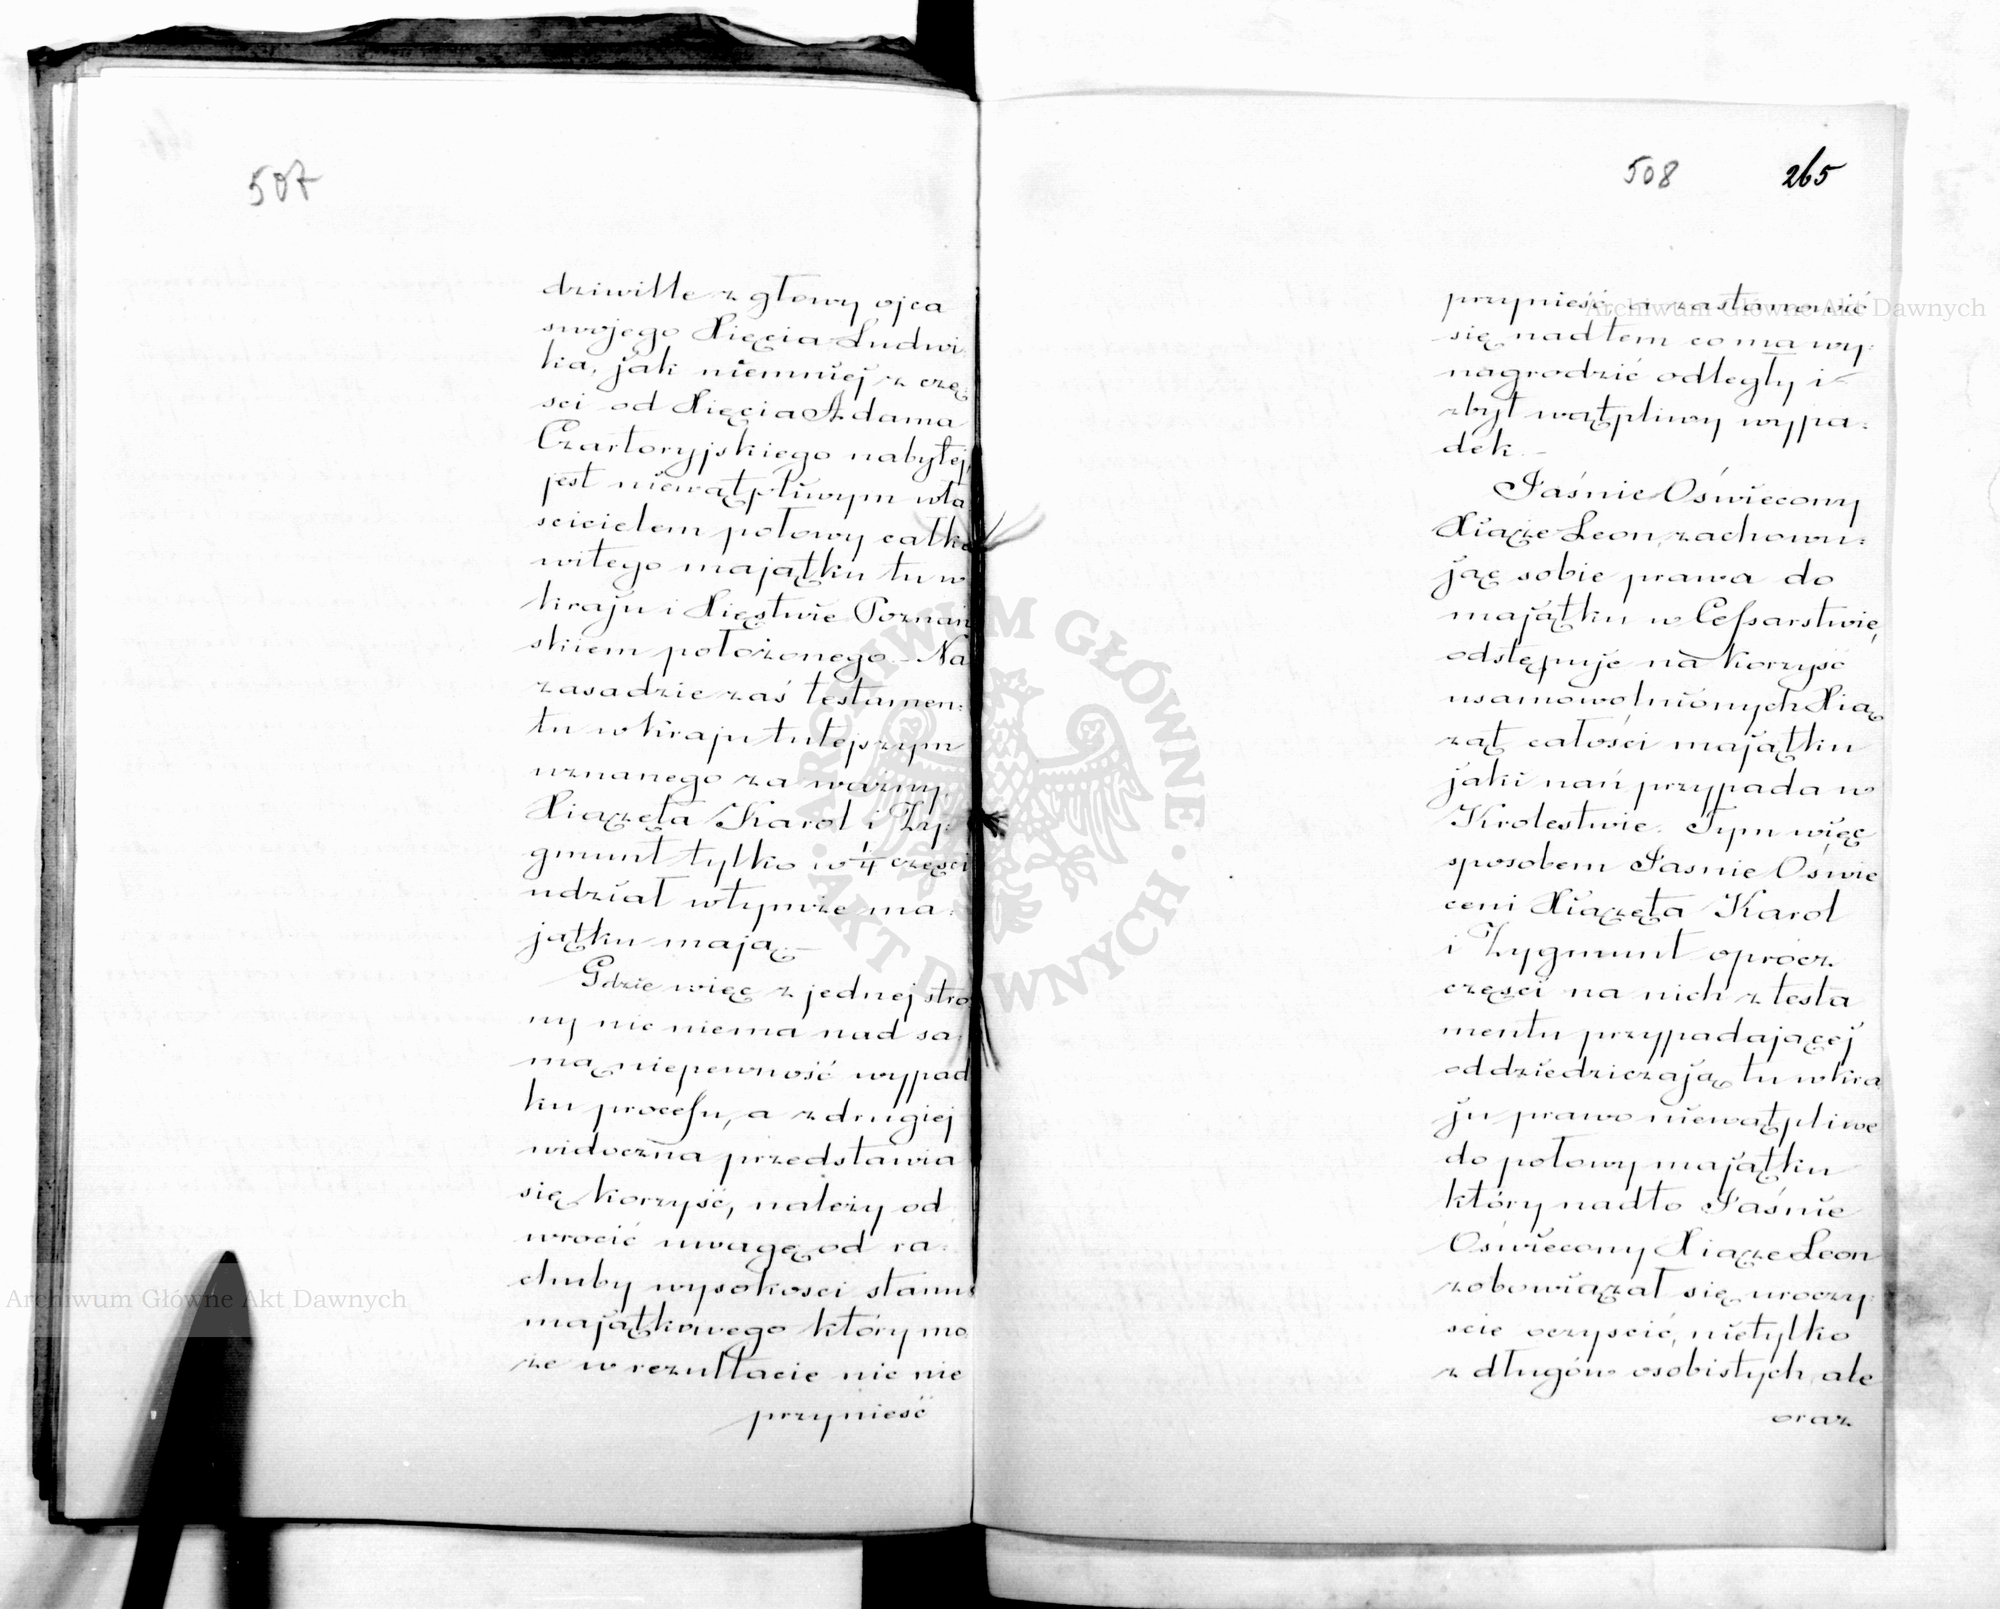 507
dziwille z głowy ojca
swojego Xięcia Ludwi:
ka, jak niemniej z czę:
sci od Xięcia Adama
Czartoryjskiego nabytej,
jest niewątpliwym wła
scicielem połowy całko
witego majątku tu w
kraju i Xięstwie Poznań
skiem położonego. – Na
zasadzie zaś testamen:
tu w kraju tutejszym
uznanego za ważny,
Xiążęta Karol i Zy:
gmunt tylko w 1/4 części
udział w tymże ma:
jątku mają. –
Gdzie więc z jednej stro
ny nic niema nad sa:
mą niepewność wypad
ku procesu, a z drugiej
widoczna przedstawia
się korzyść, należy od
wrocić uwagę od ra:
chuby wysokosci stanu
majątkowego który mo
że w rezultacie nic nie
przynieść
508 265
przynieść, a zastanowić
się nadtem co ma wy:
nagrodzić odległy i
zbyt wątpliwy wypa:
dek. –
Jaśnie Oświecony
Xiąże Leon, zachowu:
jąc sobie prawa do
majątku w Cessarstwie,
odstępuje na korzyść
usamowolnionych Xią
ząt całości majątku
jaki nań przypada w
Krolestwie. Tym więc
sposobem Jasnie Oświe
ceni Xiążęta Karol
i Zygmunt oprócz
części na nich z testa
mentu przypadającej
oddziedziczają tu w kra
ju prawo niewątpliwe
do połowy majątku
który nadto Jaśnie
Oświecony Xiąże Leon
zobowiązał się uroczy:
scie oczyscić, nietylko
z długów osobistych, ale
oraz
Archiwum Główne Akt Dawnych
Archiwum Główne Akt Dawnych
ARCHIWUM GŁÓWNE · AKT DAWNYCH ·